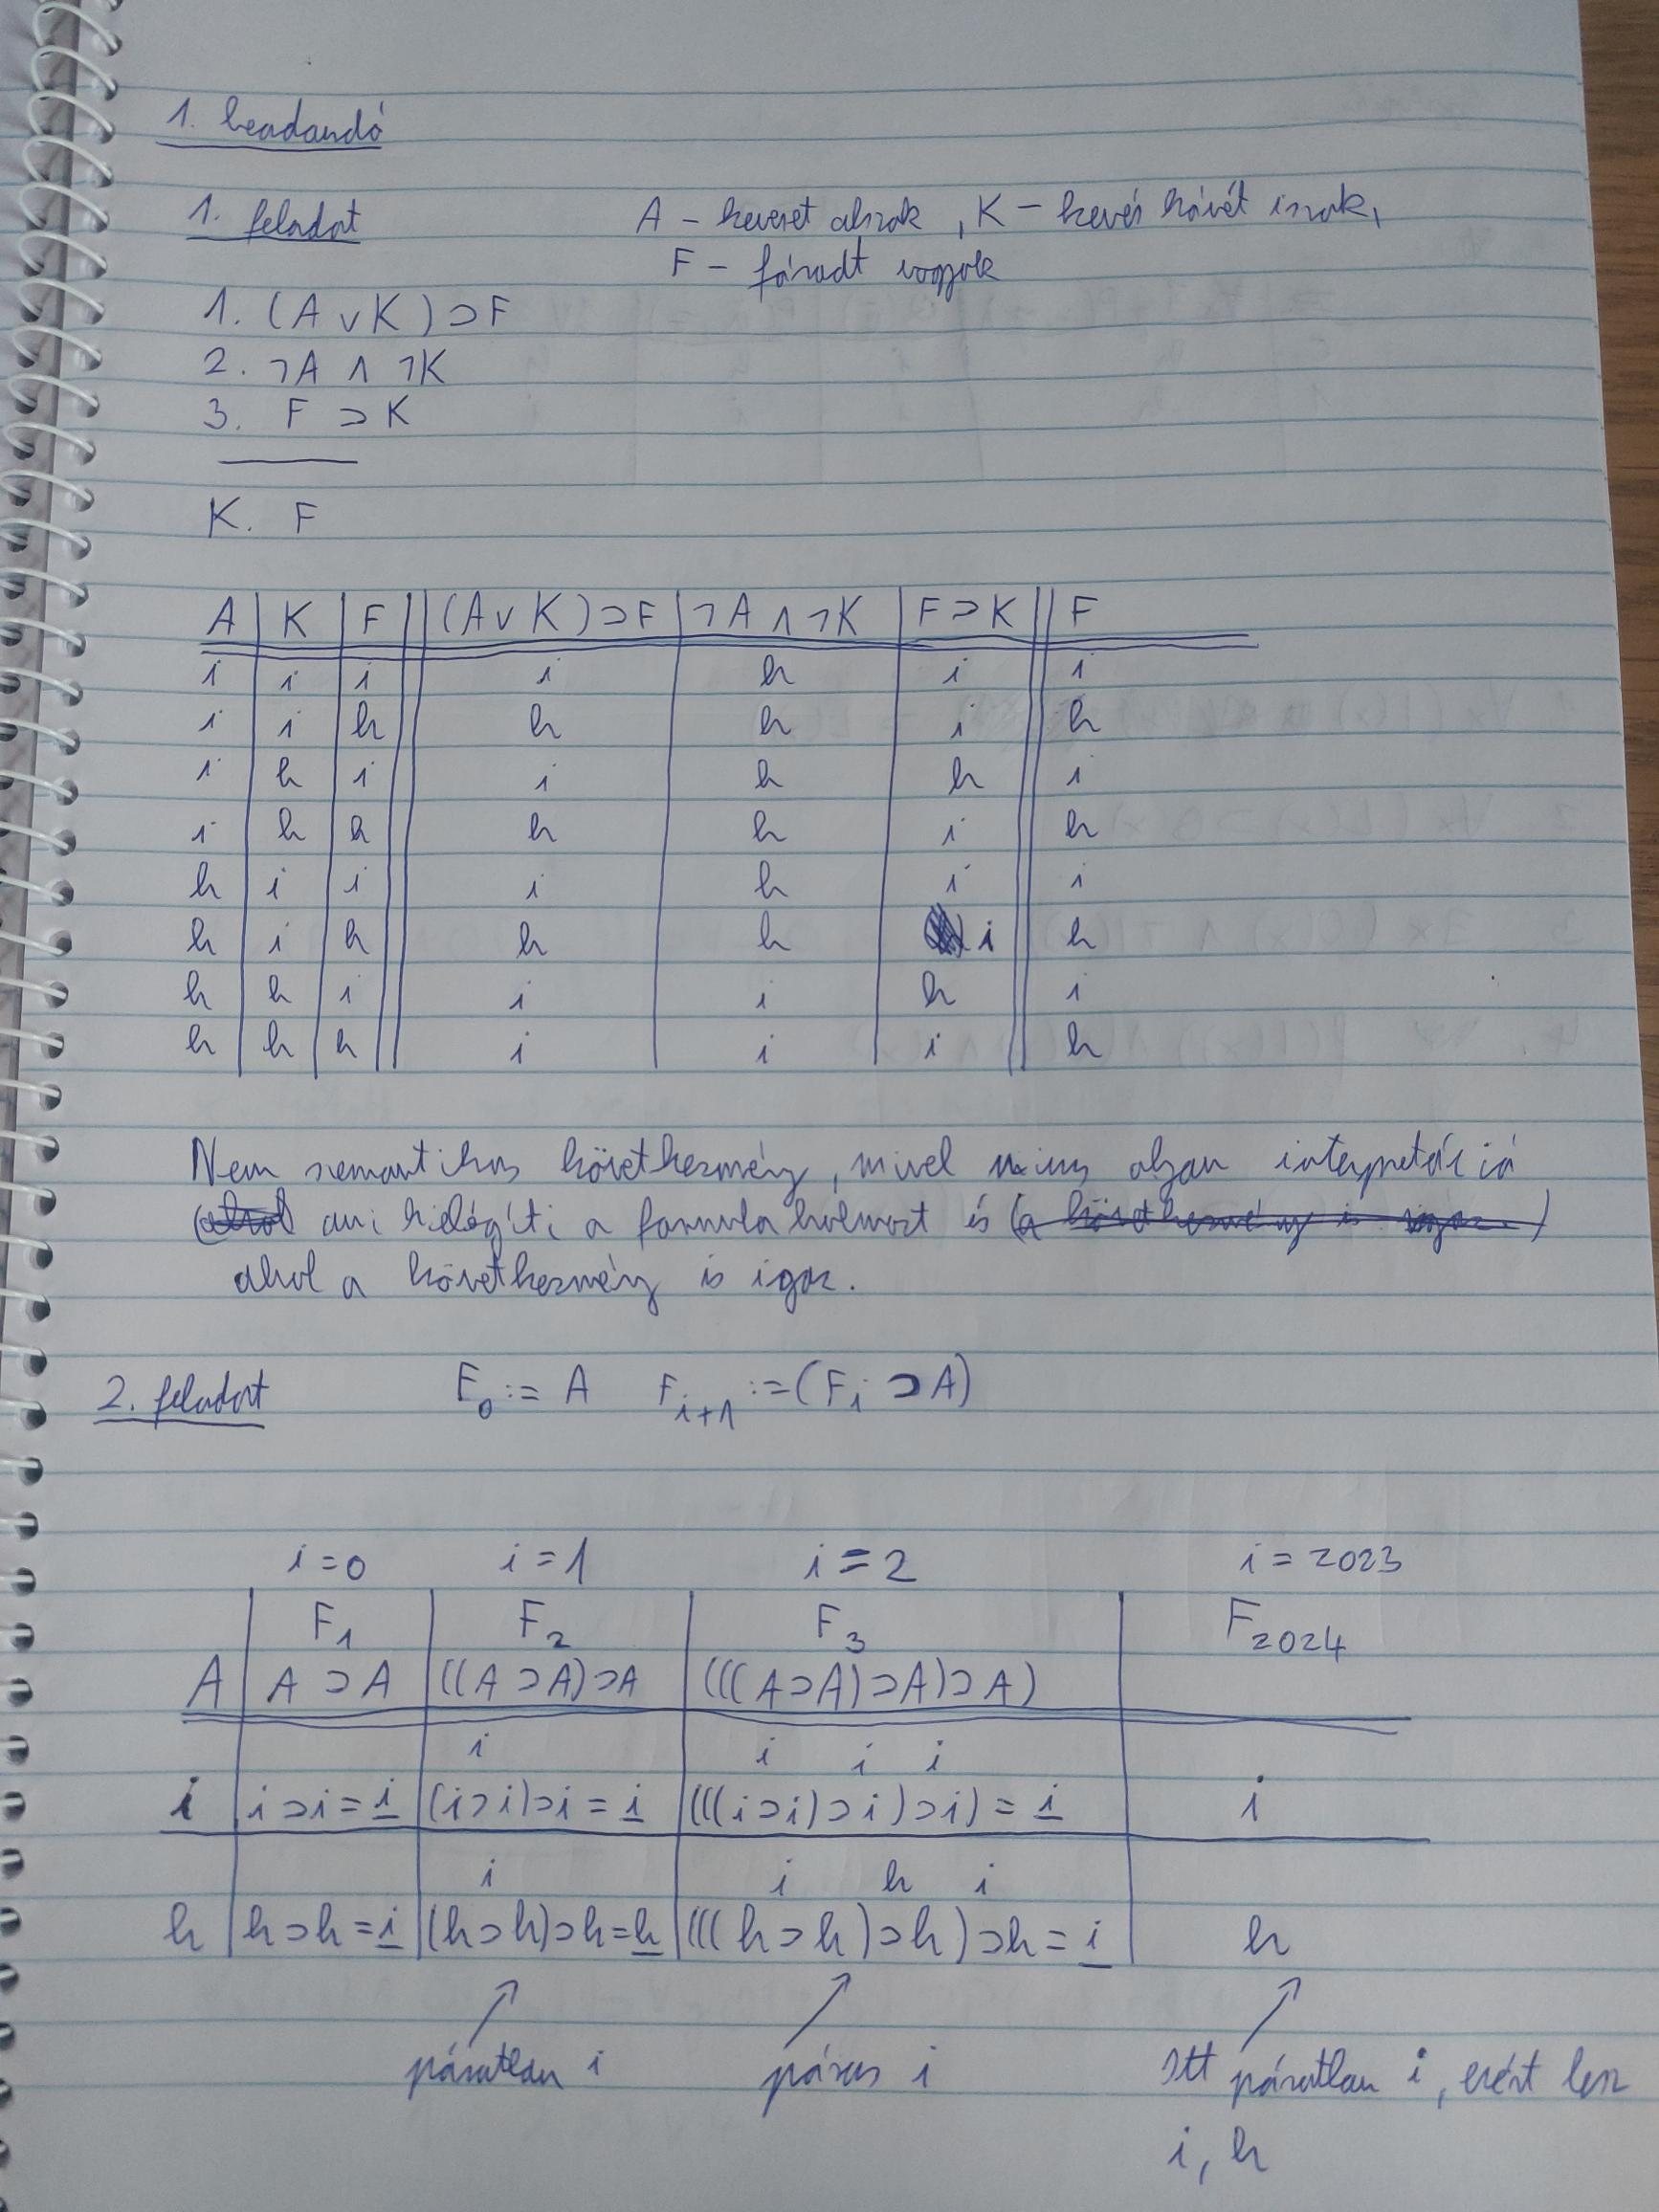 1. beadandó
1. feladat
A – keveset alszok , K – kevés kávét iszok,
F – fáradt vagyok
1. (A ∨ K) ⊃ F
2. ¬A ∧ ¬K
3. F ⊃ K
K. F
A | K | F || (A ∨ K) ⊃ F | ¬A ∧ ¬K | F ⊃ K || F
i | i | i || i | h | i || i
i | i | h || h | h | i || h
i | h | i || i | h | h || i
i | h | h || h | h | i || h
h | i | i || i | h | i || i
h | i | h || h | h | i || h
h | h | i || i | i | h || i
h | h | h || i | i | i || h
Nem szemantikus következmény, mivel nincs olyan interpretáció
(ahol) ami kielégíti a formula halmazt és (a következmény is igaz.)
ahol a következmény is igaz.
2. feladat F₀ := A Fᵢ₊₁ := (Fᵢ ⊃ A)
i = 0 i = 1 i = 2 i = 2023
F₁ | F₂ | F₃ | F₂₀₂₄
A | A ⊃ A | ((A ⊃ A) ⊃ A | (((A ⊃ A) ⊃ A) ⊃ A)
i i i i
i | i ⊃ i = i | (i ⊃ i) ⊃ i = i | (((i ⊃ i) ⊃ i) ⊃ i) = i | i
i i h i
h | h ⊃ h = i | (h ⊃ h) ⊃ h = h | (((h ⊃ h) ⊃ h) ⊃ h = i | h
páratlan i páros i Itt páratlan i, ezért lesz
i, h